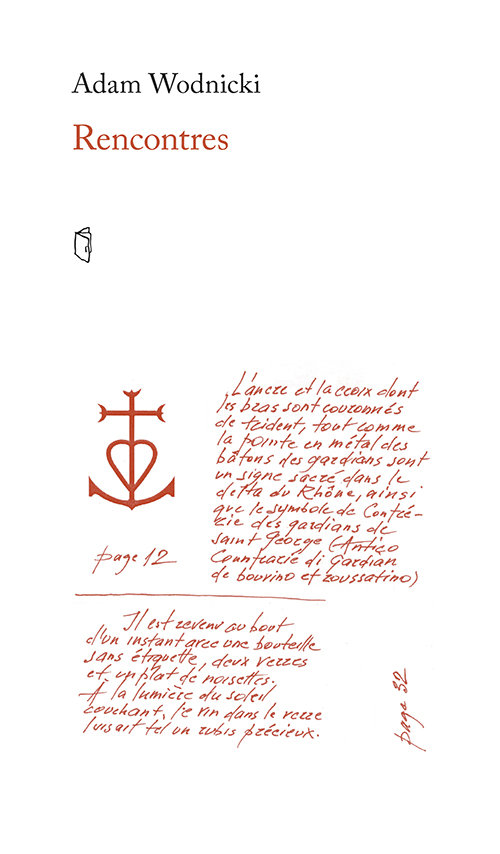 Adam Wodnicki
Rencontres
L'ancre et la croix dont
les bras sont couronnés
de trident, tout comme
la pointe en métal des
bâtons des gardians sont
un signe sacré dans le
delta du Rhône, ainsi
que le symbole de Confré-
rie des gardians de
saint George (Antico
Counfrarié di Gardian
de bouvino et roussatino)
page 12
Il est revenu au bout
d'un instant avec une bouteille
sans étiquette, deux verres
et un plat de noisettes.
À la lumière du soleil
couchant, le vin dans le verre
luisait tel un rubis précieux.
page 32